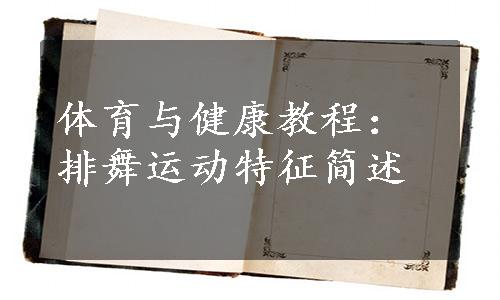 体育与健康教程：
排舞运动特征简述